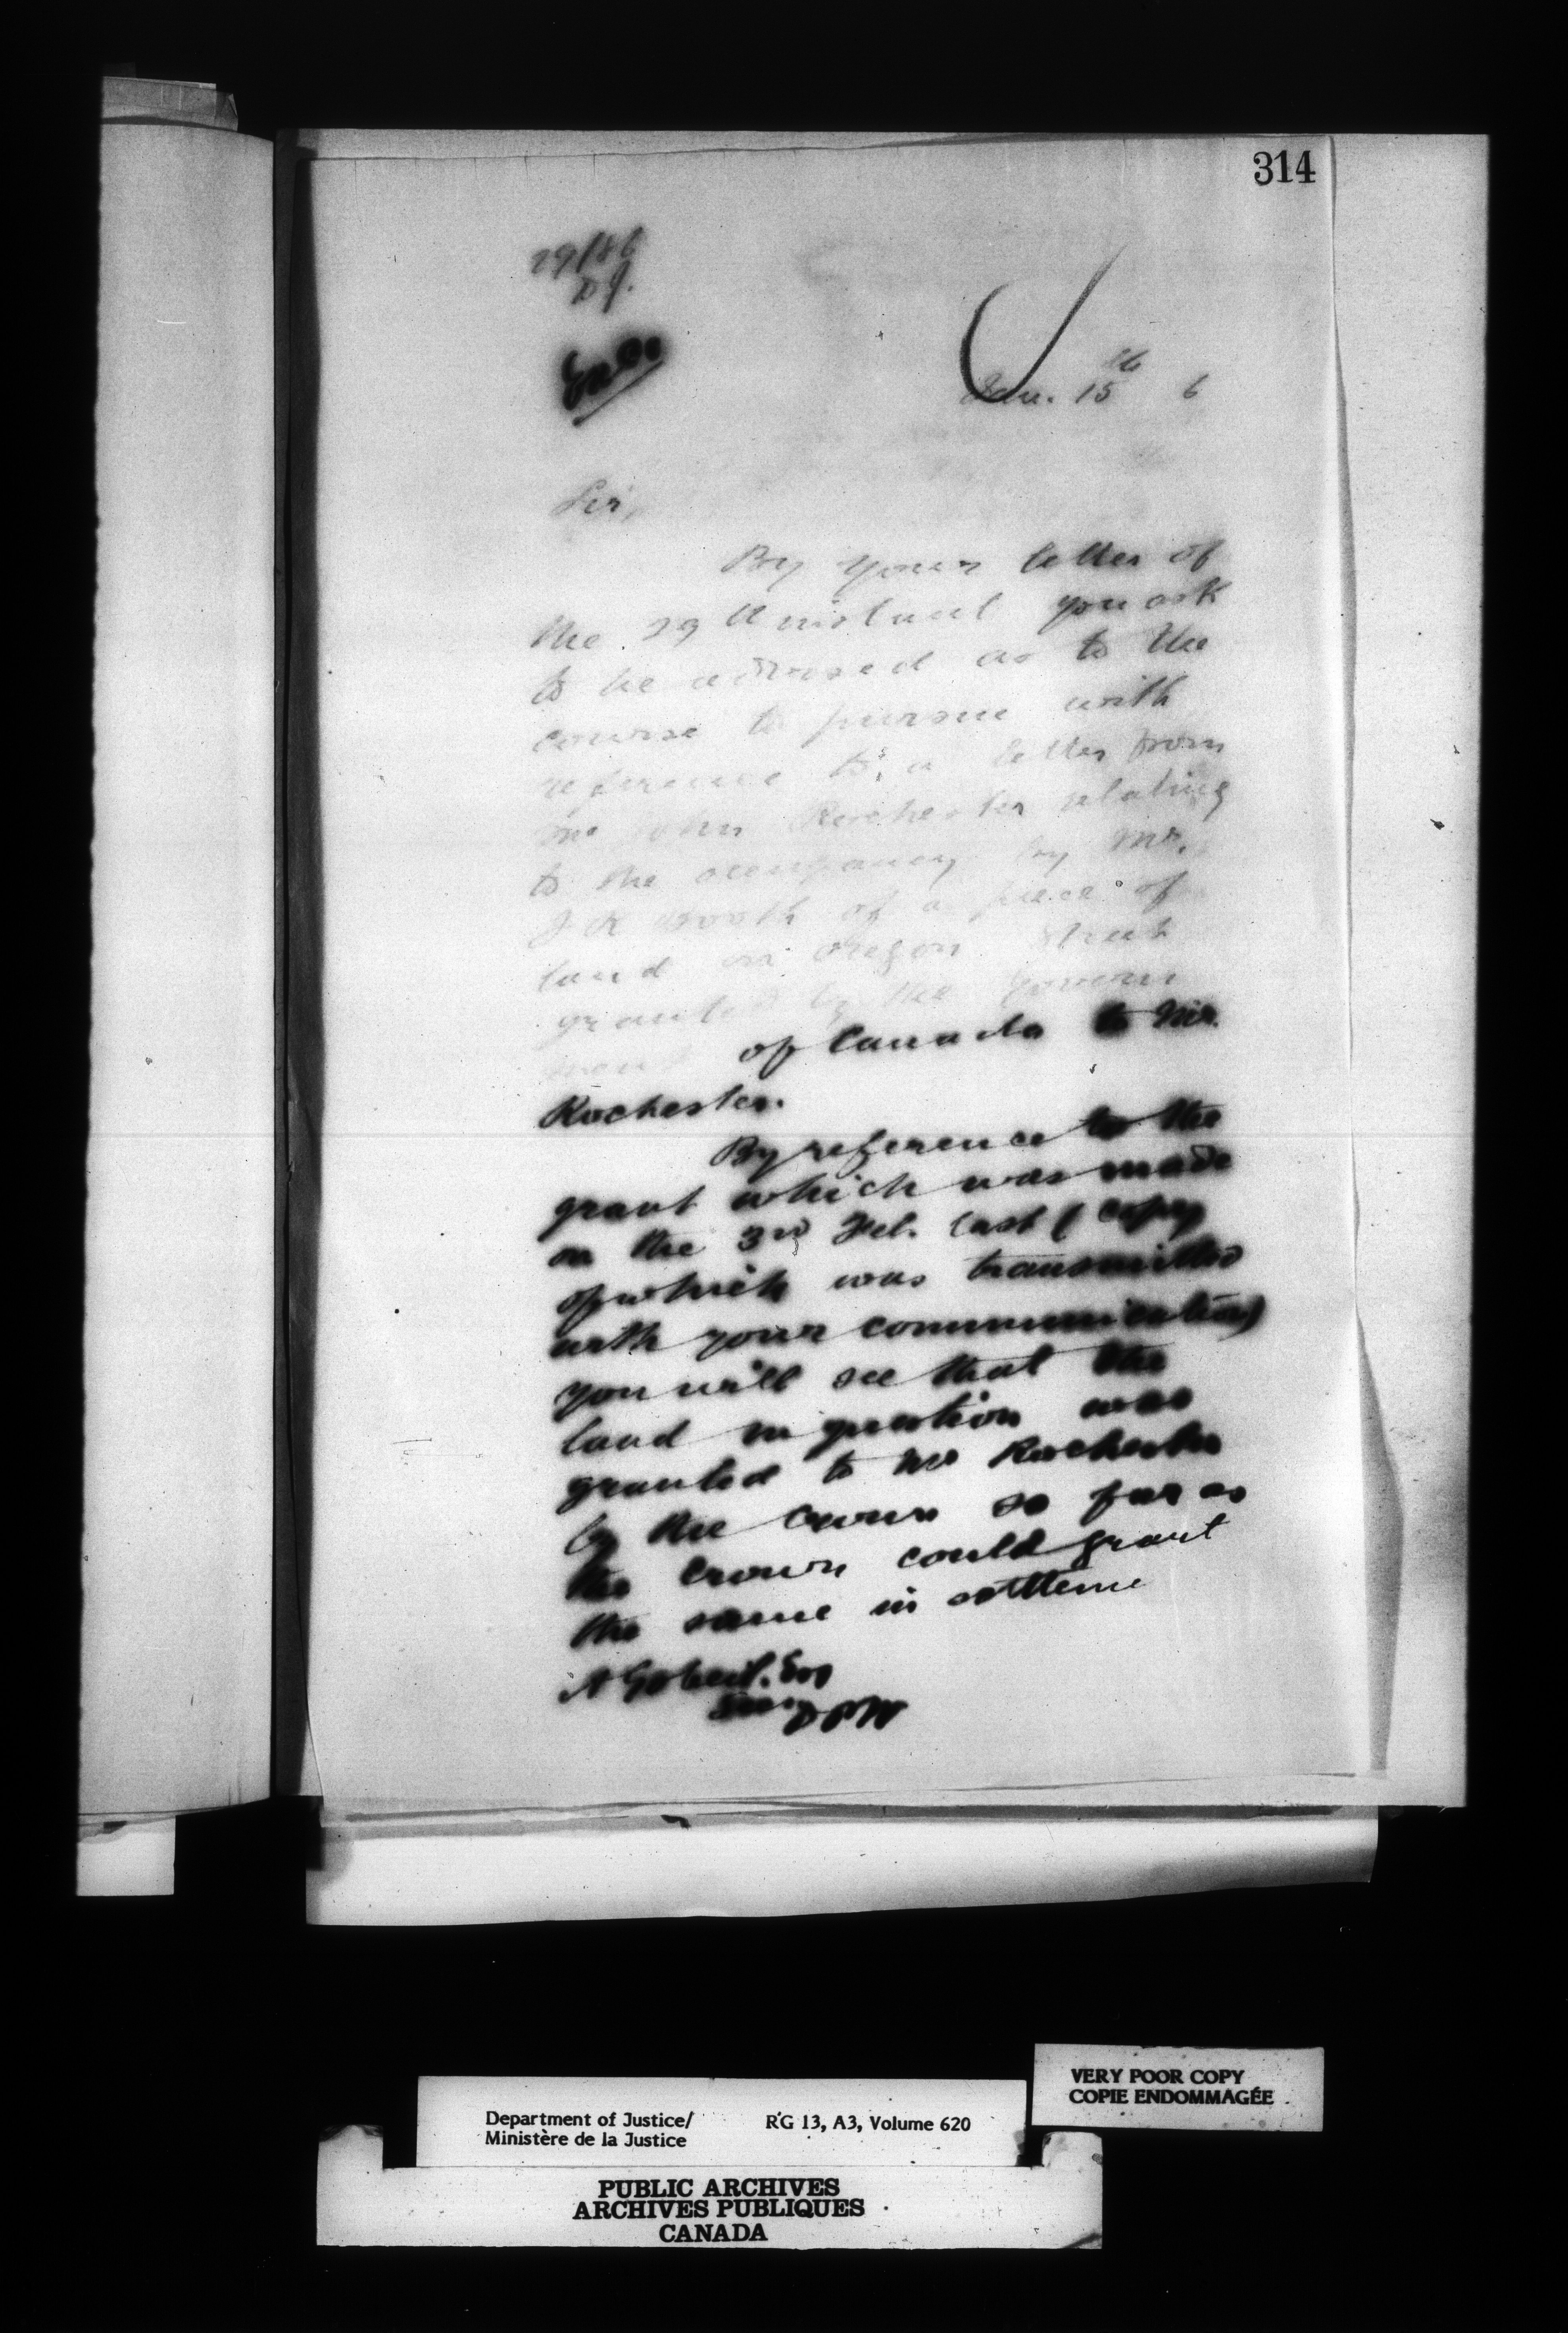 314
29/86
D.J.
Jan. 15th 6
Sir,
By your letter of
the 29th instant you ask
to be advised as to the
course to pursue with
reference to a letter from
Mr John Rochester relating
to the occupancy by Mr.
J R Booth of a piece of
land on Oregon Street
granted by the Govern
ment of Canada to Mr.
Rochester.
By reference to the
grant which was made
on the 3rd Feb. last (copy
of which was transmitted
with your communication)
you will see that the
land in question was
granted to Mr Rochester
by the Crown so far as
the Crown could grant
the same in settleme
A Gobeil. Esq
Secy D P W
Department of Justice/
Ministère de la Justice
RG 13, A3, Volume 620
VERY POOR COPY
COPIE ENDOMMAGÉE
PUBLIC ARCHIVES
ARCHIVES PUBLIQUES
CANADA